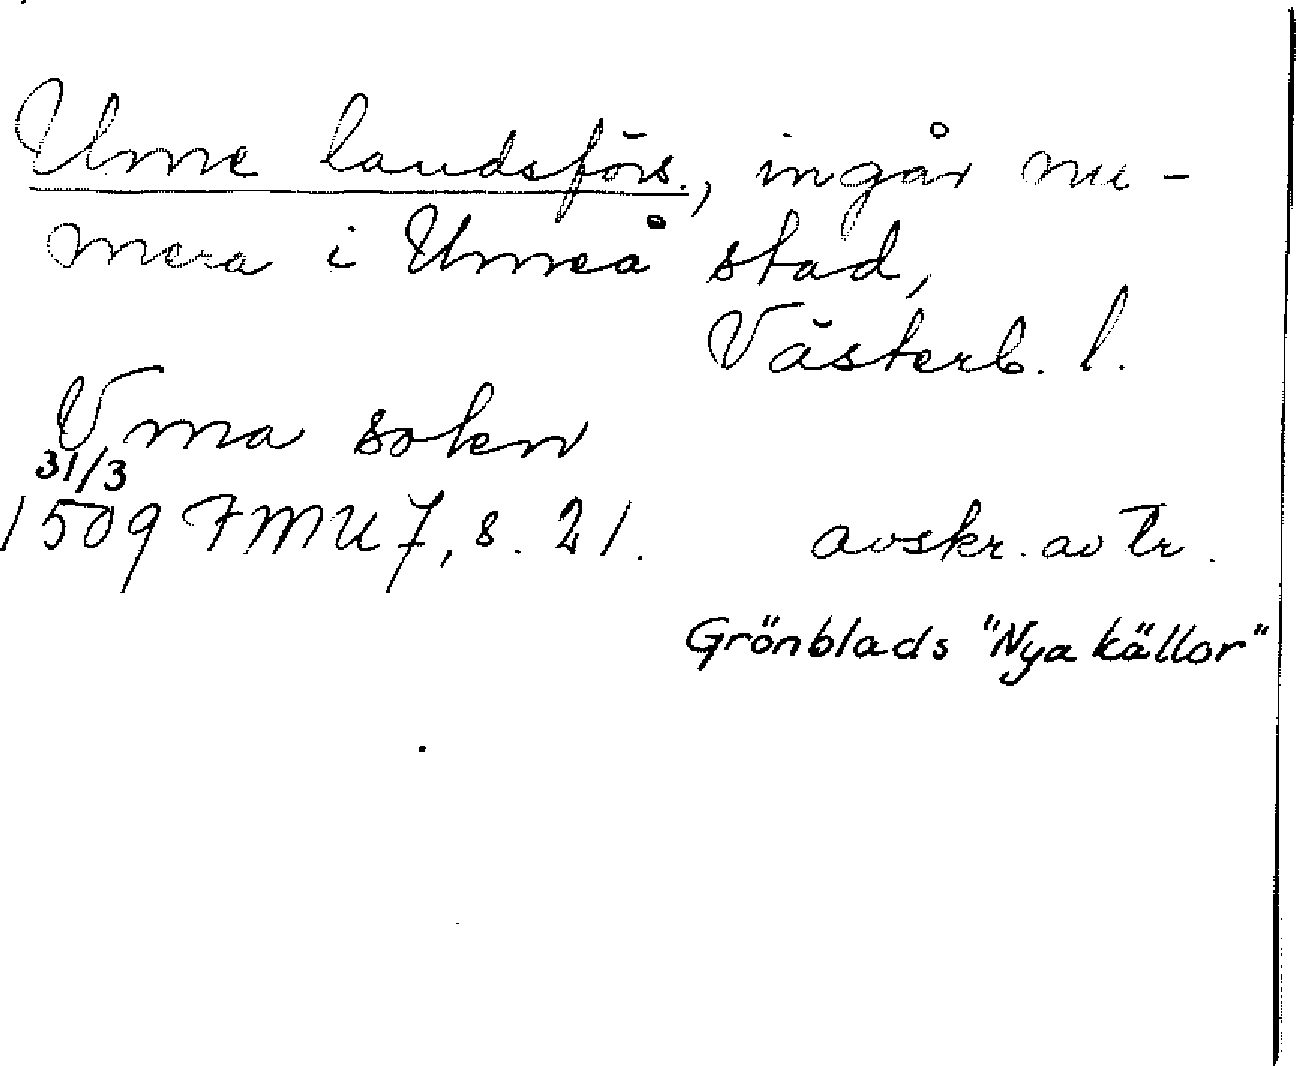 Ume landsförs., ingår nu-
mera i Umeå stad,
Västerb. l.
Vma soken
31/3
1509 FMU 7, s. 21. avskr. av tr.
Grönblads "Nya källor"